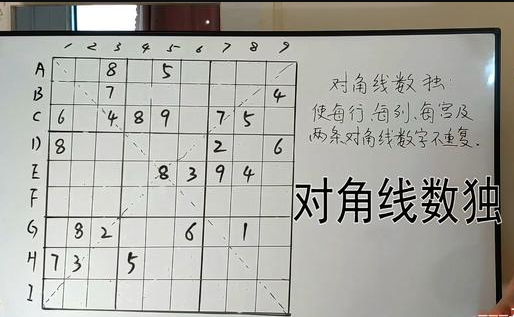 1 2 3 4 5 6 7 8 9
A 8 5
B 7 4
C 6 4 8 9 7 5
D 8 2 6
E 8 3 9 4
F
G 8 2 6 1
H 7 3 5
I
对角线数独:
使每行、每列、每宫及
两条对角线数字不重复.
对角线数独